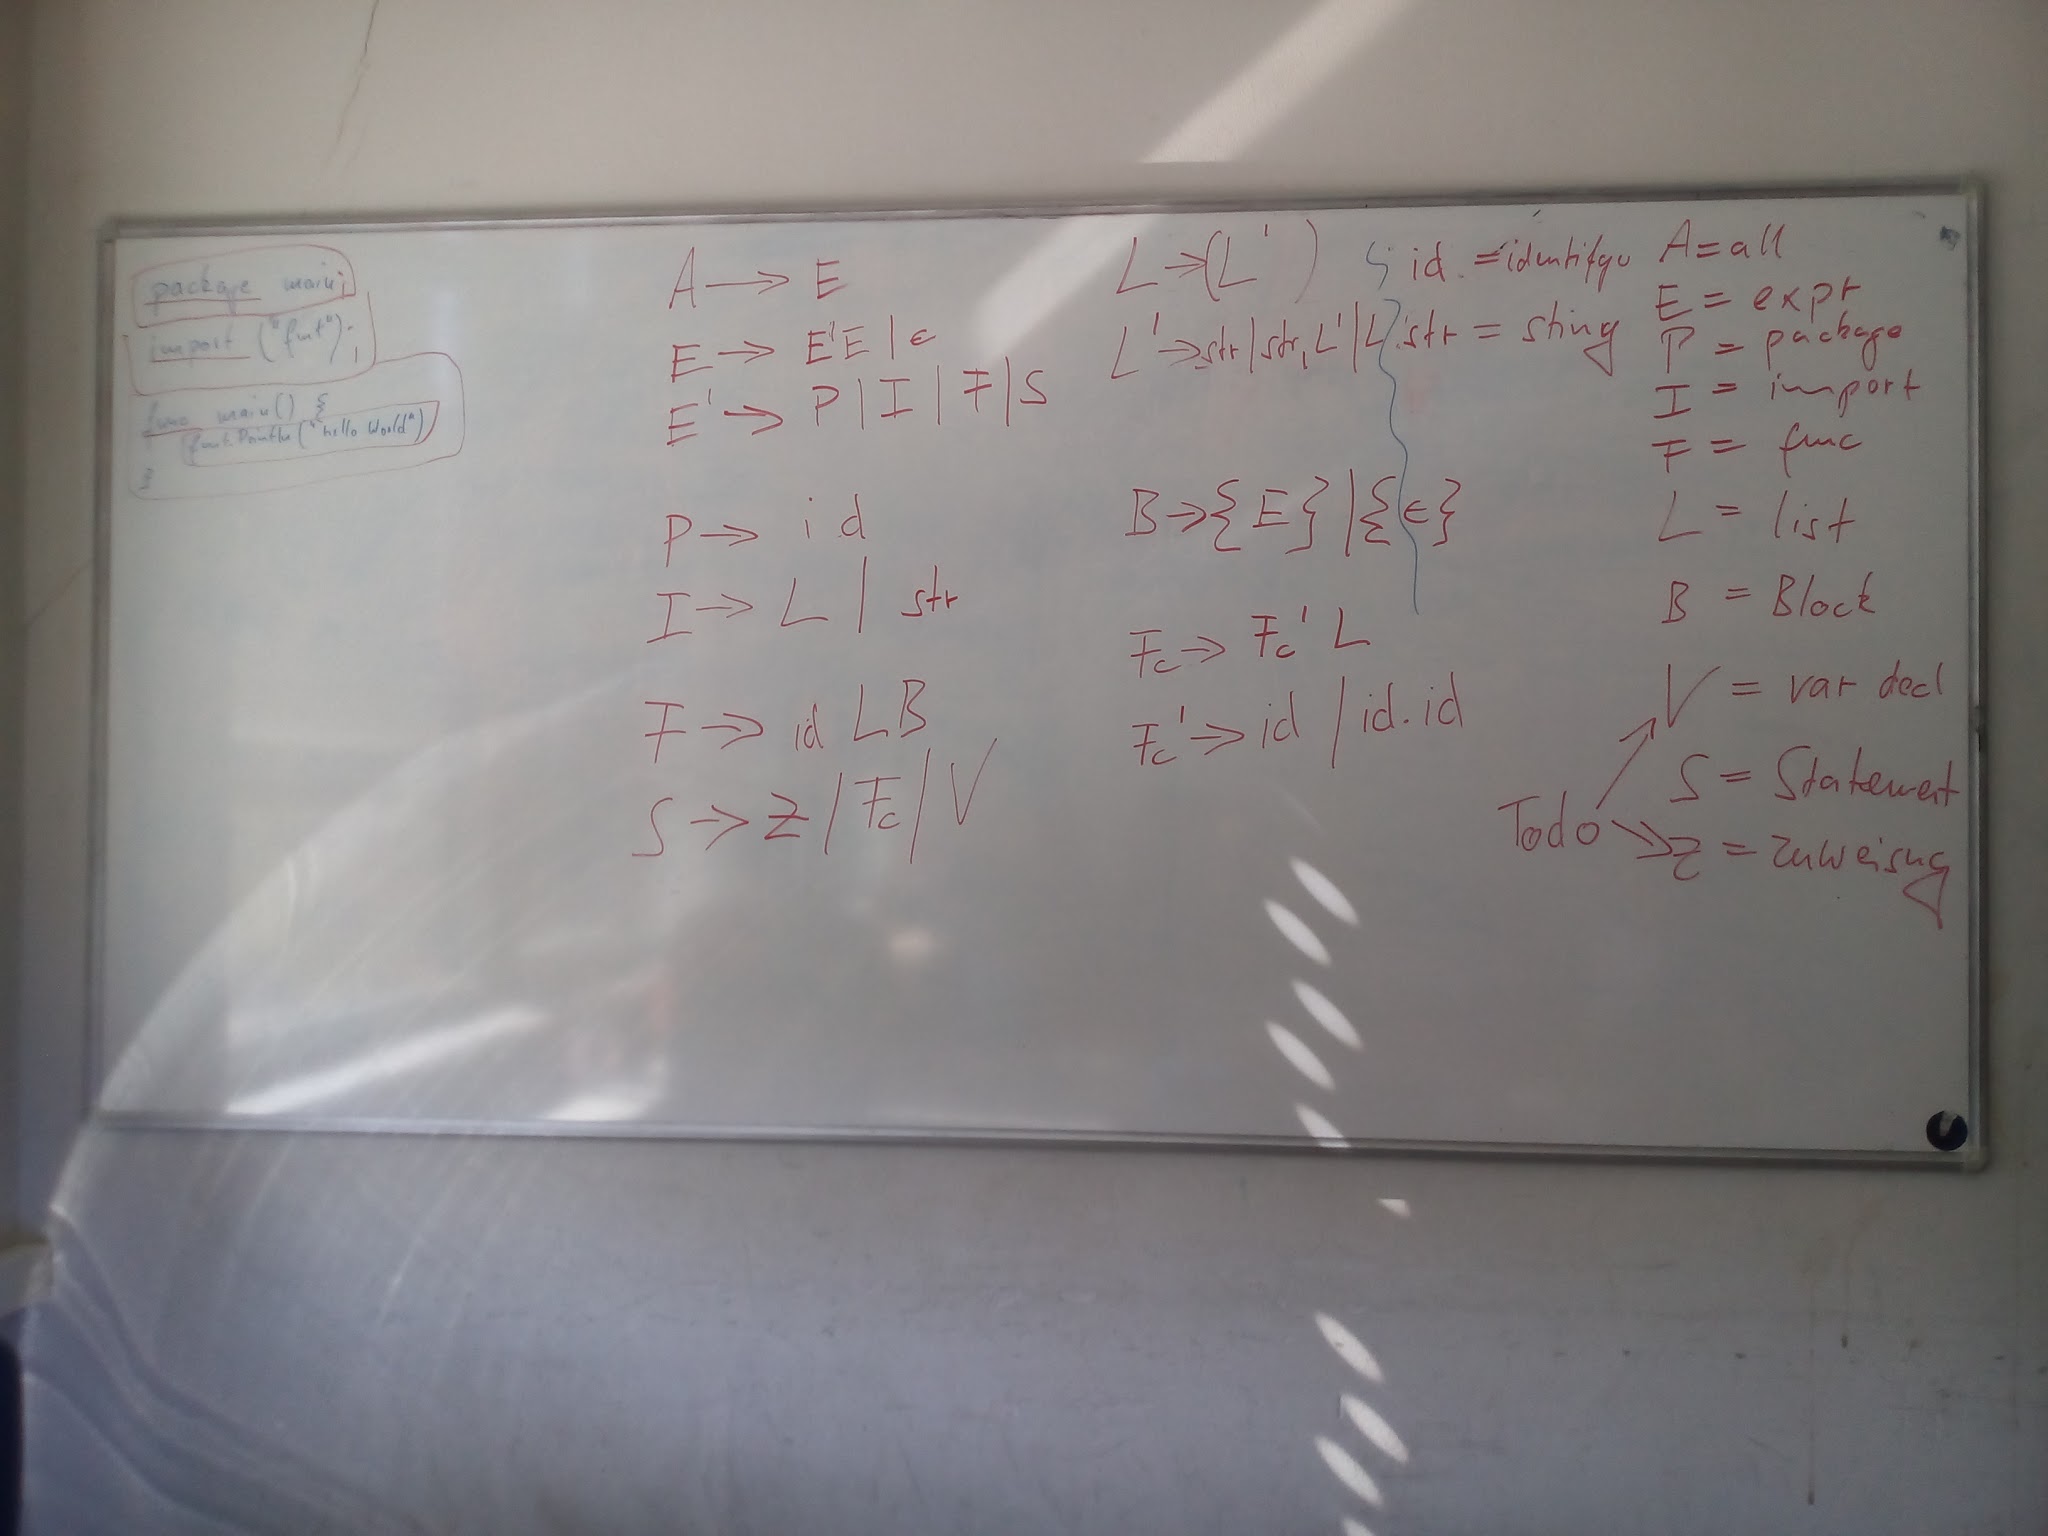 package main;
import ("fmt");
func main() {
fmt.Println("hello World")
}
A → E
E → E'E | ϵ
E' → P | I | F | S
P → id
I → L | str
F → id L B
S → Z / Fc / V
L → (L')
L' → str | str, L' | L
B → {E} | {ϵ}
Fc → Fc' L
Fc' → id / id.id
id =
str = sting
A = all
E = expr
P = package
I = import
F = func
L = list
B = Block
V = var decl
S = Statement
Todo
Z = Zuweisung